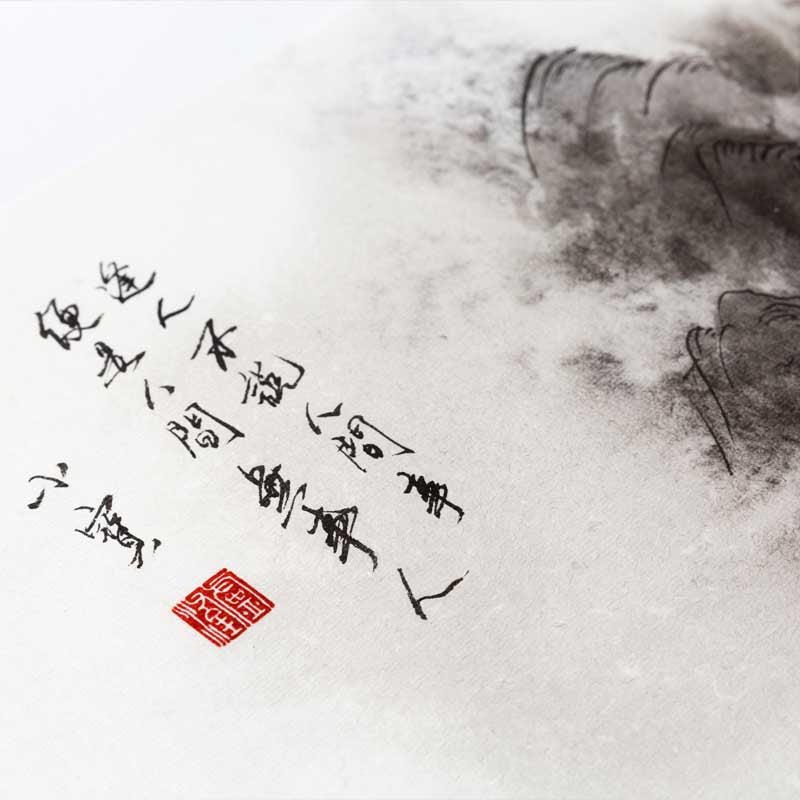 逢人不說人間事
便是人間無事人
小寶